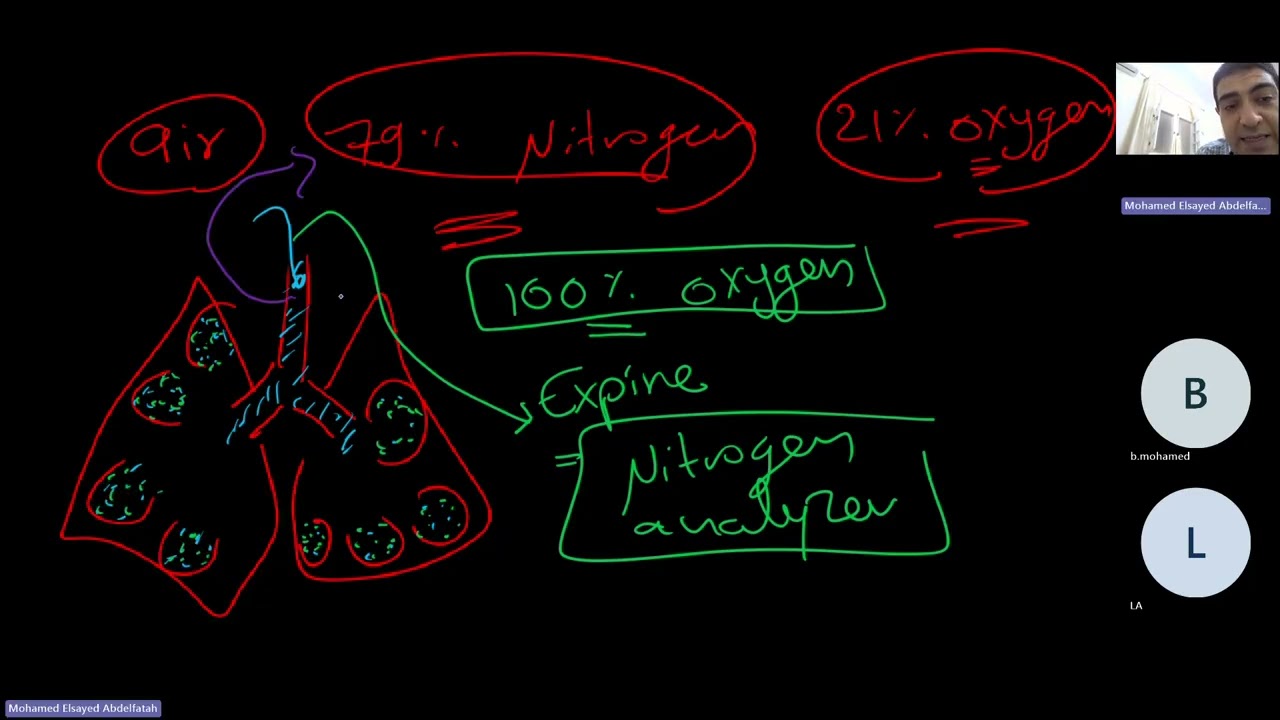 air 79% Nitrogen 21% oxygen
100% oxygen
Expire
Nitrogen
analyzer
Mohamed Elsayed Abdelfa...
B
b.mohamed
L
LA
Mohamed Elsayed Abdelfatah